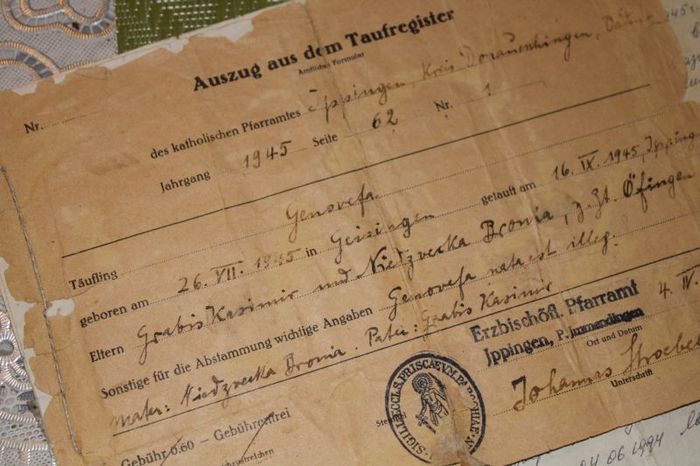 Auszug aus dem Taufregister
Amtliches Formular
Nr.
des katholischen Pfarramtes Ippingen Kreis Donaueschingen, Baden
Jahrgang 1945 Seite 62 Nr. 1
Täufling Genovefa
geboren am 26. VII. 1945 in Geisingen getauft am 16. IX. 1945, Ipping
Eltern Grabis Kasimir und Niedzvecka Bronia, z. Zt. Öfingen
Sonstige für die Abstammung wichtige Angaben Genovefa nata est illeg.
mater: Niedzvecka Bronia. Pater: Grabis Kasimir
Erzbischöfl. Pfarramt
Ippingen, P. Immendingen
4. IV.
Ort und Datum
Johannes Stroebel
Unterschrift
Gebühr 0.60 — Gebührenfrei
SIGILL. ECCLS. PRISCAE VM. PAROCHIAE
04 06 1994